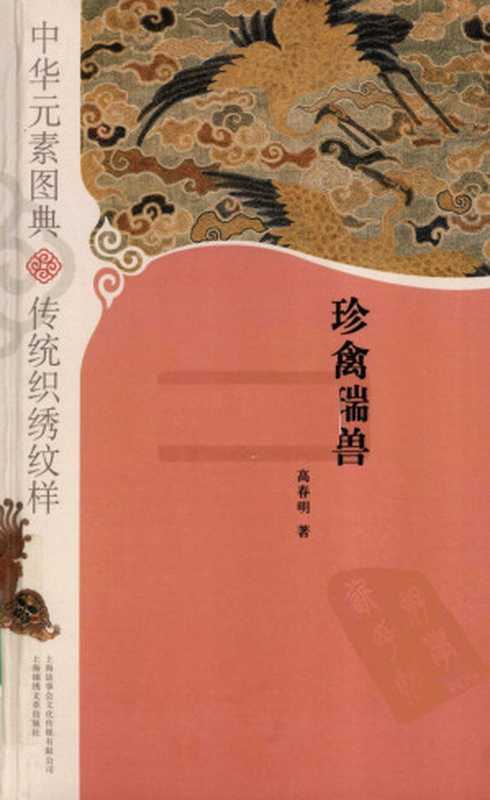 中华元素图典
传统织绣纹样
珍禽瑞兽
高春明 著
上海故事会文化传媒有限公司
上海锦绣文章出版社